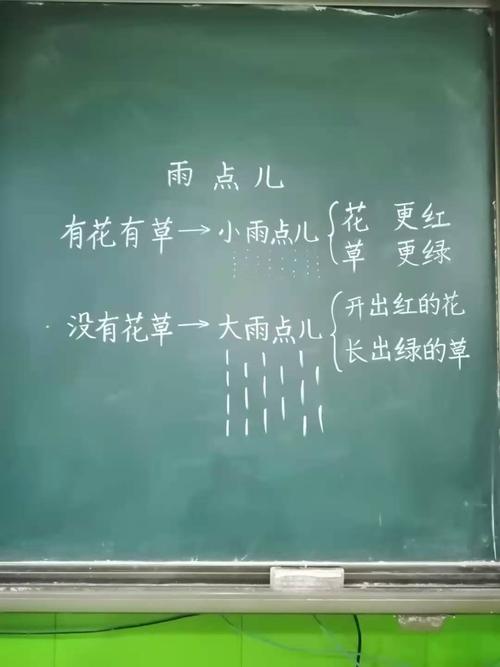 雨点儿
有花有草→小雨点儿{花 更红
草 更绿
没有花草→大雨点儿{开出红的花
长出绿的草